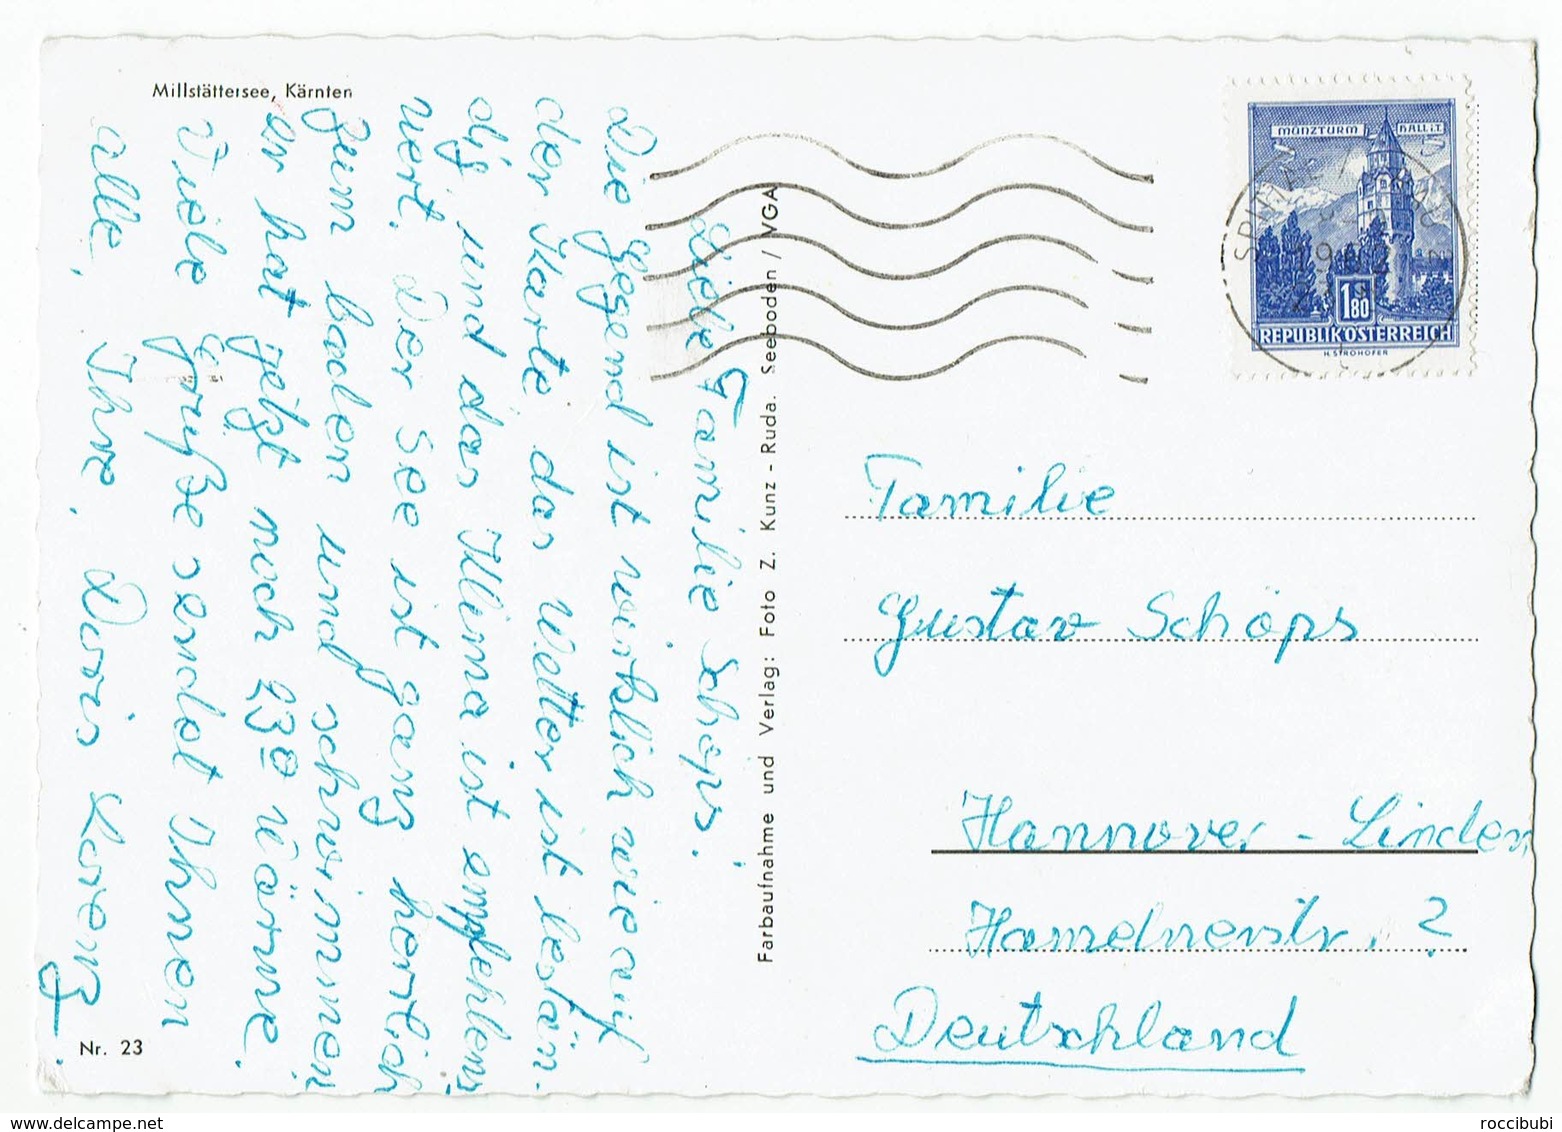 Millstättersee, Kärnten
Liebe Familie Schöps!
Die Gegend ist wirklich wie auf
der Karte das Wetter ist bestän-
dig, und das Klima ist empfehlens
wert. Der See ist ganz herrlich
zum baden und schwimmen
er hat jetzt noch 23º Wärme.
Viele Grüße sendet Ihnen
alle, Ihre, Doris Lorenz.
Nr. 23
Farbaufnahme und Verlag: Foto Z. Kunz - Ruda. Seeboden / VGA
MÜNZTURM HALL i.T.
1.80
REPUBLIK ÖSTERREICH
H. STROHOFER
Familie
Gustav Schöps
Hannover - Linden
Hamelnerstr. 2
Deutschland
roccibubi